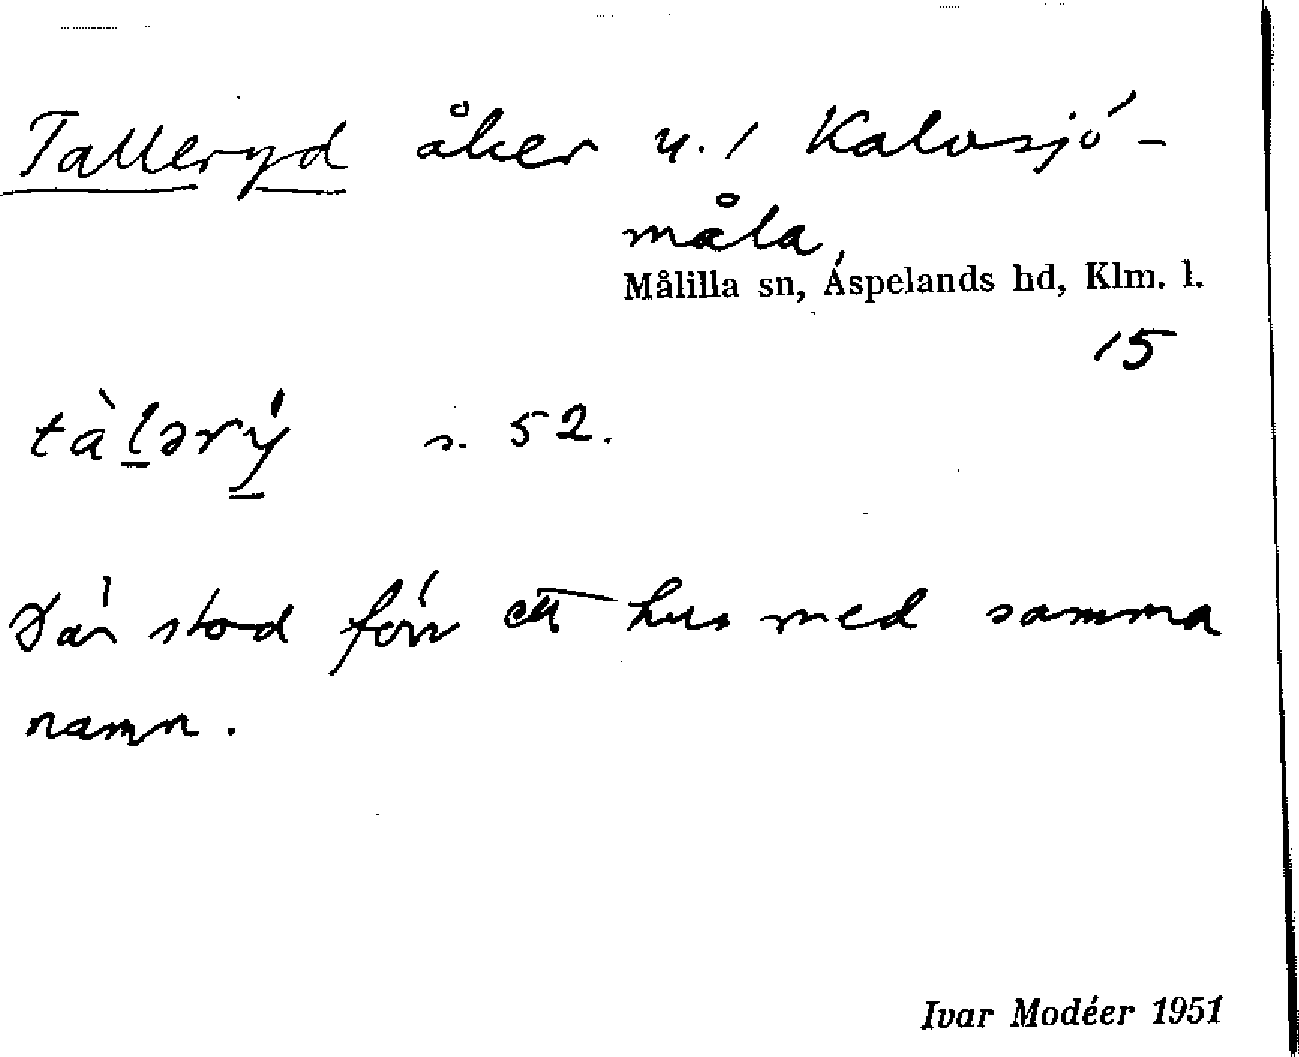 Talleryd åker u. / Kalvsjö-
måla
Målilla sn, Aspelands hd, Klm. l.
15
tàlərý s. 52.
Där stod förr ett hus med samma
namn.
Ivar Modéer 1951